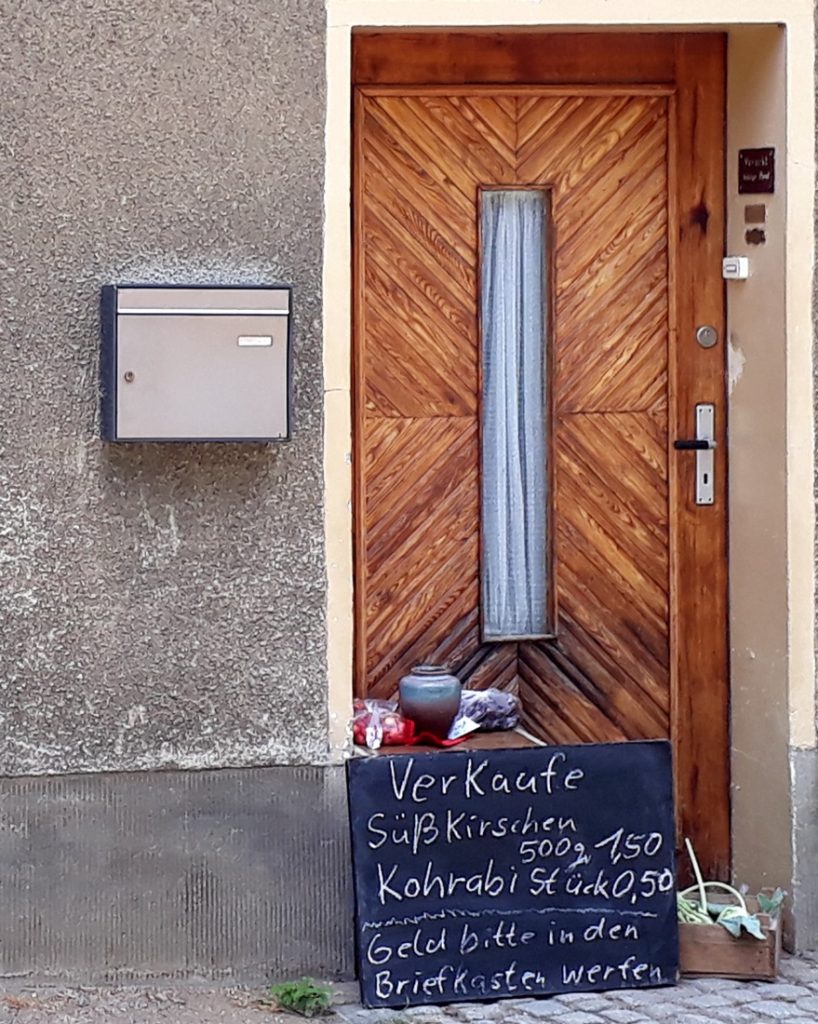 Verkaufe
Süßkirschen
500g 1,50
Kohrabi Stück 0,50
Geld bitte in den
Briefkasten werfen